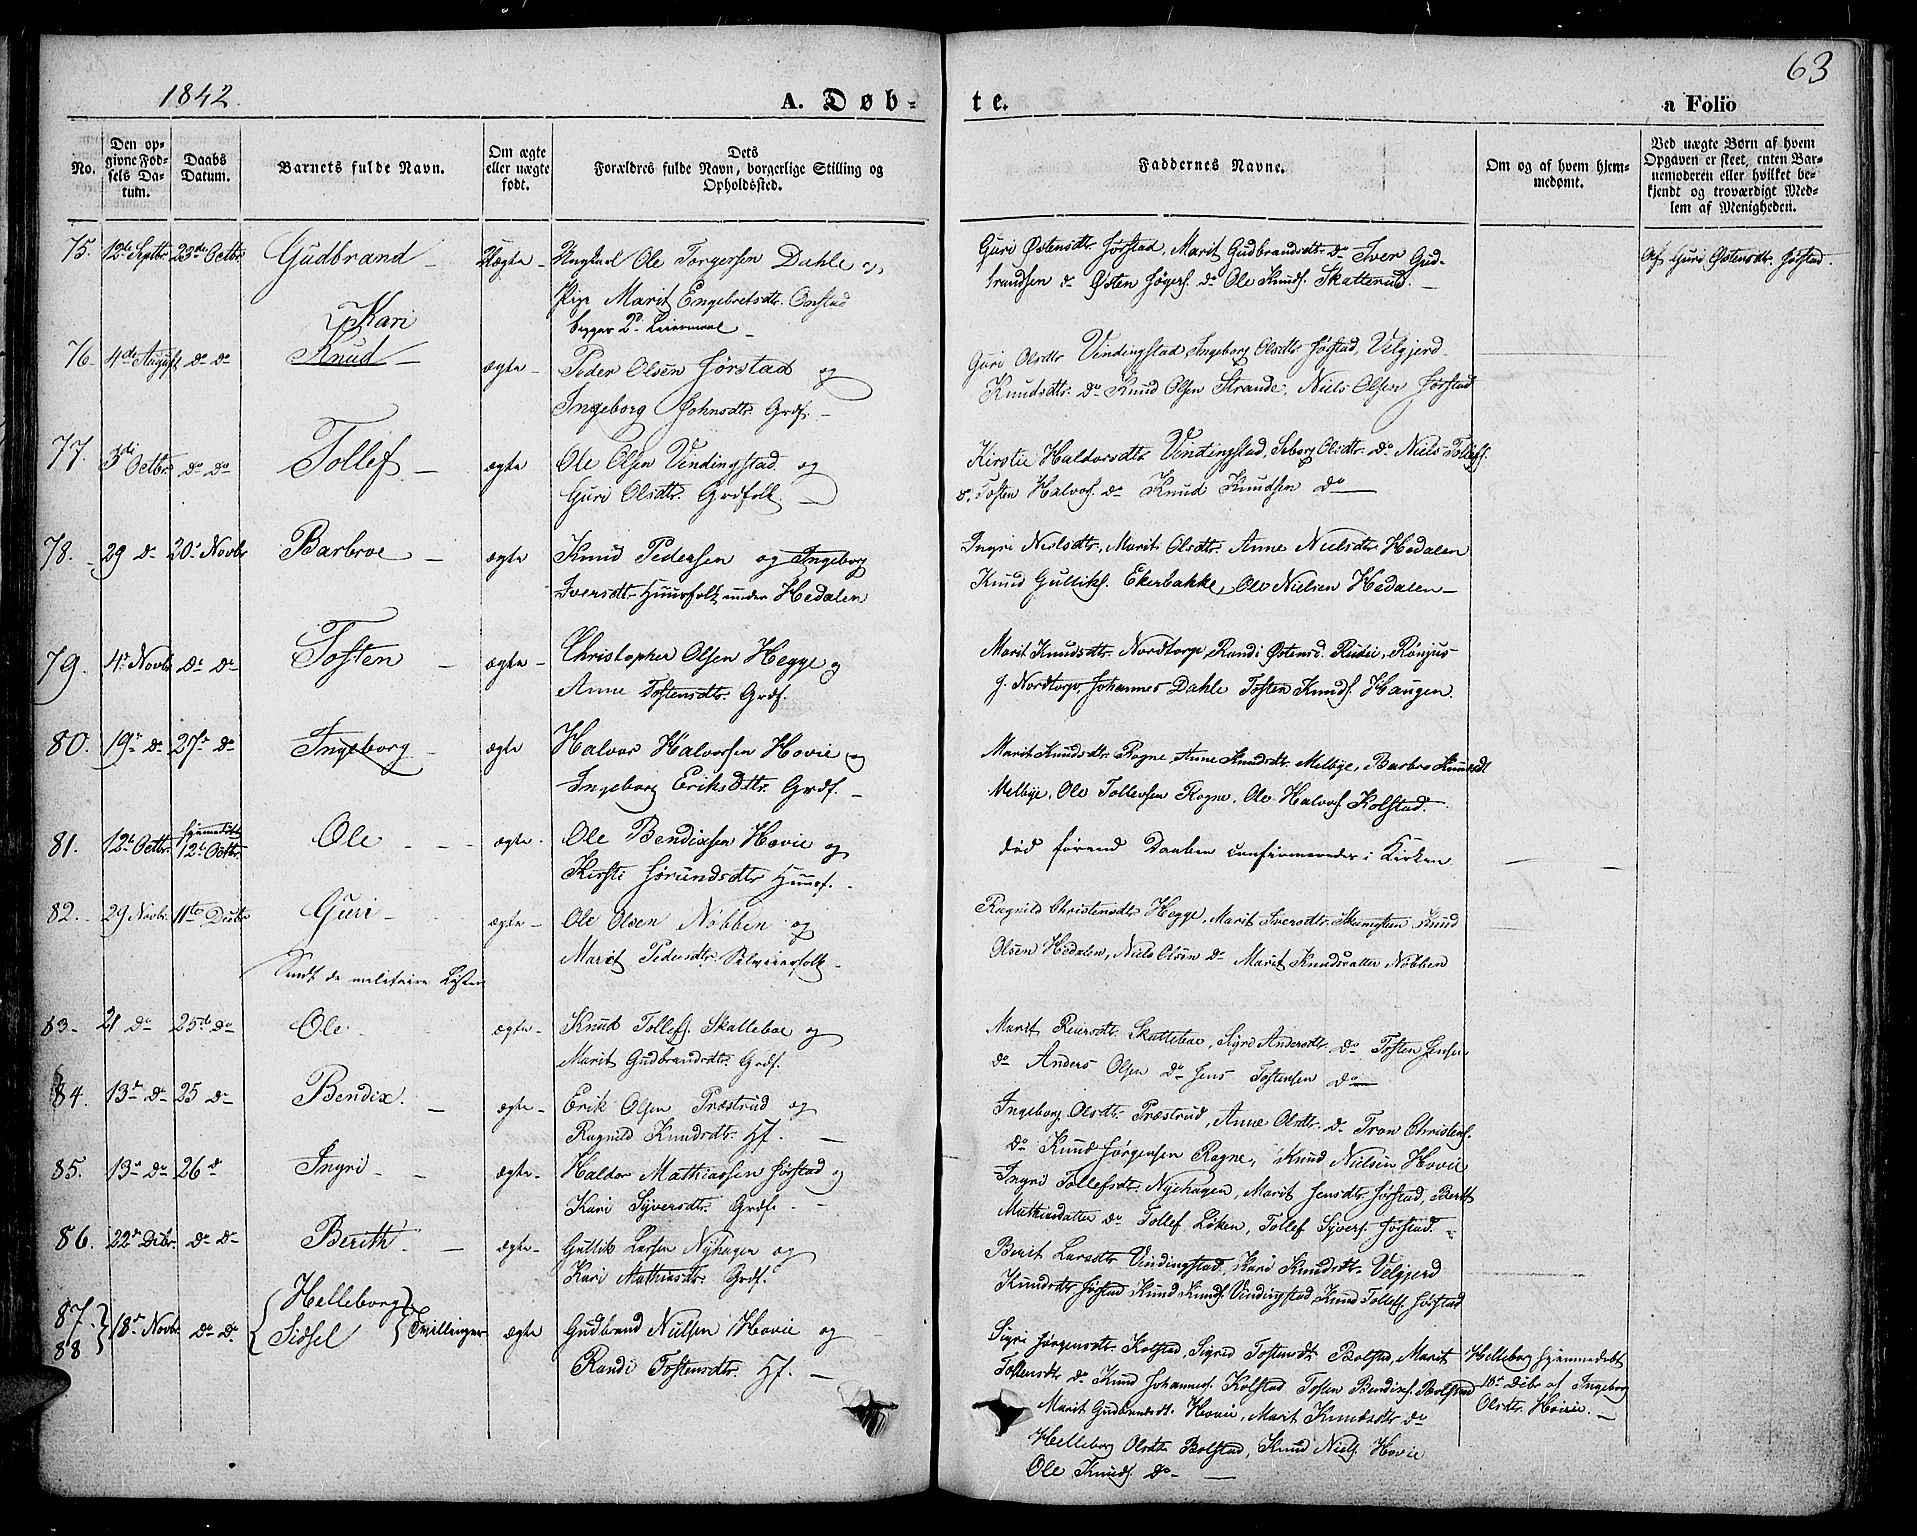 1842.
A. Døb-
te.
63
a Folio
No.
Den op-
givne Fød-
sels Da-
tum.
Daabs
Datum.
Barnets fulde Navn.
Om ægte
eller uægte
født.
Dets
Forældres fulde Navn, borgerlige Stilling og
Opholdssted.
Faddernes Navne.
Om og af hvem hjem-
medømt.
Ved uægte Børn af hvem
Opgaven er skeet, enten Bar-
nemoderen eller hvilket be-
kjendt og troværdigt Med-
lem af Menigheden.
75. 12te Septbr 23de Octbr Gudbrand Uægte Ungkarl Ole Torgersen Dahle og
Pige Marit Engebretsdtr. Onstad
begges 2d Leiermaal
Guri Østensdtr. Jørstad, Marit Gudbrandsdtr. do Iver Gud-
brandsen do Østen do Ole Knuds. Skatterud.
Af Guri Østensdtr. Jørstad.
Kari
76. 4de August do do Knud ægte Peder Olsen Jørstad og
Ingeborg Johnsdtr. Grdf.
Guri Olsdtr Vindingstad, Ingeborg Olsdtr. Jørstad, Velgjerd
Knudsdtr. do Knud Olsen Strande, Niels Olsen Jørstad
77. 3die Octbr do do Tollef ægte Ole Olsen Vindingstad og
Guri Olsdtr. Grdfolk
Kirstie Haldorsdtr Vindingstad, Seborg Olsdtr. do Niels Tollefs.
Tosten Halvors. do Knud Knudsen do
78. 29 do 20. Novbr Barbroe ægte Knud Pedersen og Ingeborg
Iversdtr. Huusfolk under Hedalen
Ingri Nielsdtr., Marit Olsdtr. Anne Nielsdtr Hedalen
Knud Gulliks. Ekerbakke, Ole Nielsen Hedalen
79. 4de Novbr do do Tosten ægte Christopher Olsen Hegge og
Anne Tostensdtr. Grdf.
Marit Knudsdtr. Nordtorp, Randi Østensd. Rudie,
Nordtorp, Johannes Dahle Tosten Knuds. Haugen.
80. 19de do 27de do Ingeborg ægte Halvor Halvorsen Hovie og
Ingeborg Eriksdtr. Grdf.
Marit Knudsdtr. Rogne, Anne Knudsdtr. Melbye, Barbro Knudsdt
Melbye, Ole Tollevsen Rogne, Ole Halvors. Kolstad.
81. 12te Octbr. hjemmedøbt
12te Octbr. Ole ægte Ole Bendixsen Hovie og
Kirsti Jørundsdtr Huusf.
død førend Daaben confirmeredes i Kirken
82. 29 Novbr. 11te Decbr Guri ægte Ole Olsen Nøbben og
Marit Pedersdtr. Selveierfolk
Ragnild Christensdtr. Hegge, Marit Iversdtr. Skumsteen Knud
Olsen Hedalen, Niels Olsen do Marit Knudsdatter Nøbben
Sendt de militaire Lister
83. 21 do 25de do Ole ægte Knud Tollefs. Skatteboe og
Marit Gudbrandsdtr. Grdf.
Marit Reiersdtr. Skattebae, Sigri Andersdtr. do Tosten Jensen
do Anders Olsen do Jens Tostensen do
84. 13de do 25 do Bendix. ægte Erik Olsen Præstrud og
Ragnild Knudsdtr. Hf.
Ingeborg Olsdtr. Præstrud, Anne Olsdtr. do Tron Christens.
do Knud Jørgensen Rogne, Knud Nielsen Hovie
85. 13de do 26 d Ingri ægte Haldor Mathiassen Jørstad og
Kari Syversdtr. Grdf.
Ingri Tollefsdtr. Nyehagen, Marit Jensdtr. Jørstad, Berit
Mathiasdatter do Tollef Løken, Tollef Syvers. Jørstad.
86. 22de Dcbr. do do Berith ægte Gullik Larsen Nyhagen og
Kari Mathiasdtr. Grdf.
Berit Larsdtr. Vindingstad, Kari Knudsdtr. Velgjerd
Knudsdtr Jørstad Knud Knuds. Vindingstad, Knud Tollefs. Jørstad
87.
88 18de Novbr. do do Helleborg
Sidsel Tvillinger ægte Gudbrand Nielsen Hovie og
Randi Tostensdtr. Hf.
Sigri Jørgensdtr. Kolstad, Sigrid Tostensdt. Bolstad, Marit
Tostensdtr do Knud Johannes. Kolstad Tosten Bendixs. Bolstad
Marit Gudbrandsdt. Hovie, Marit Knudsdtr do
Helleborg Olsdtr Bolstad, Knud Niels Hovie
Ole Knuds. do
Helleborg hjemmedøbt
18de Dcbr. af Ingeborg
Olsdtr. Hovie.